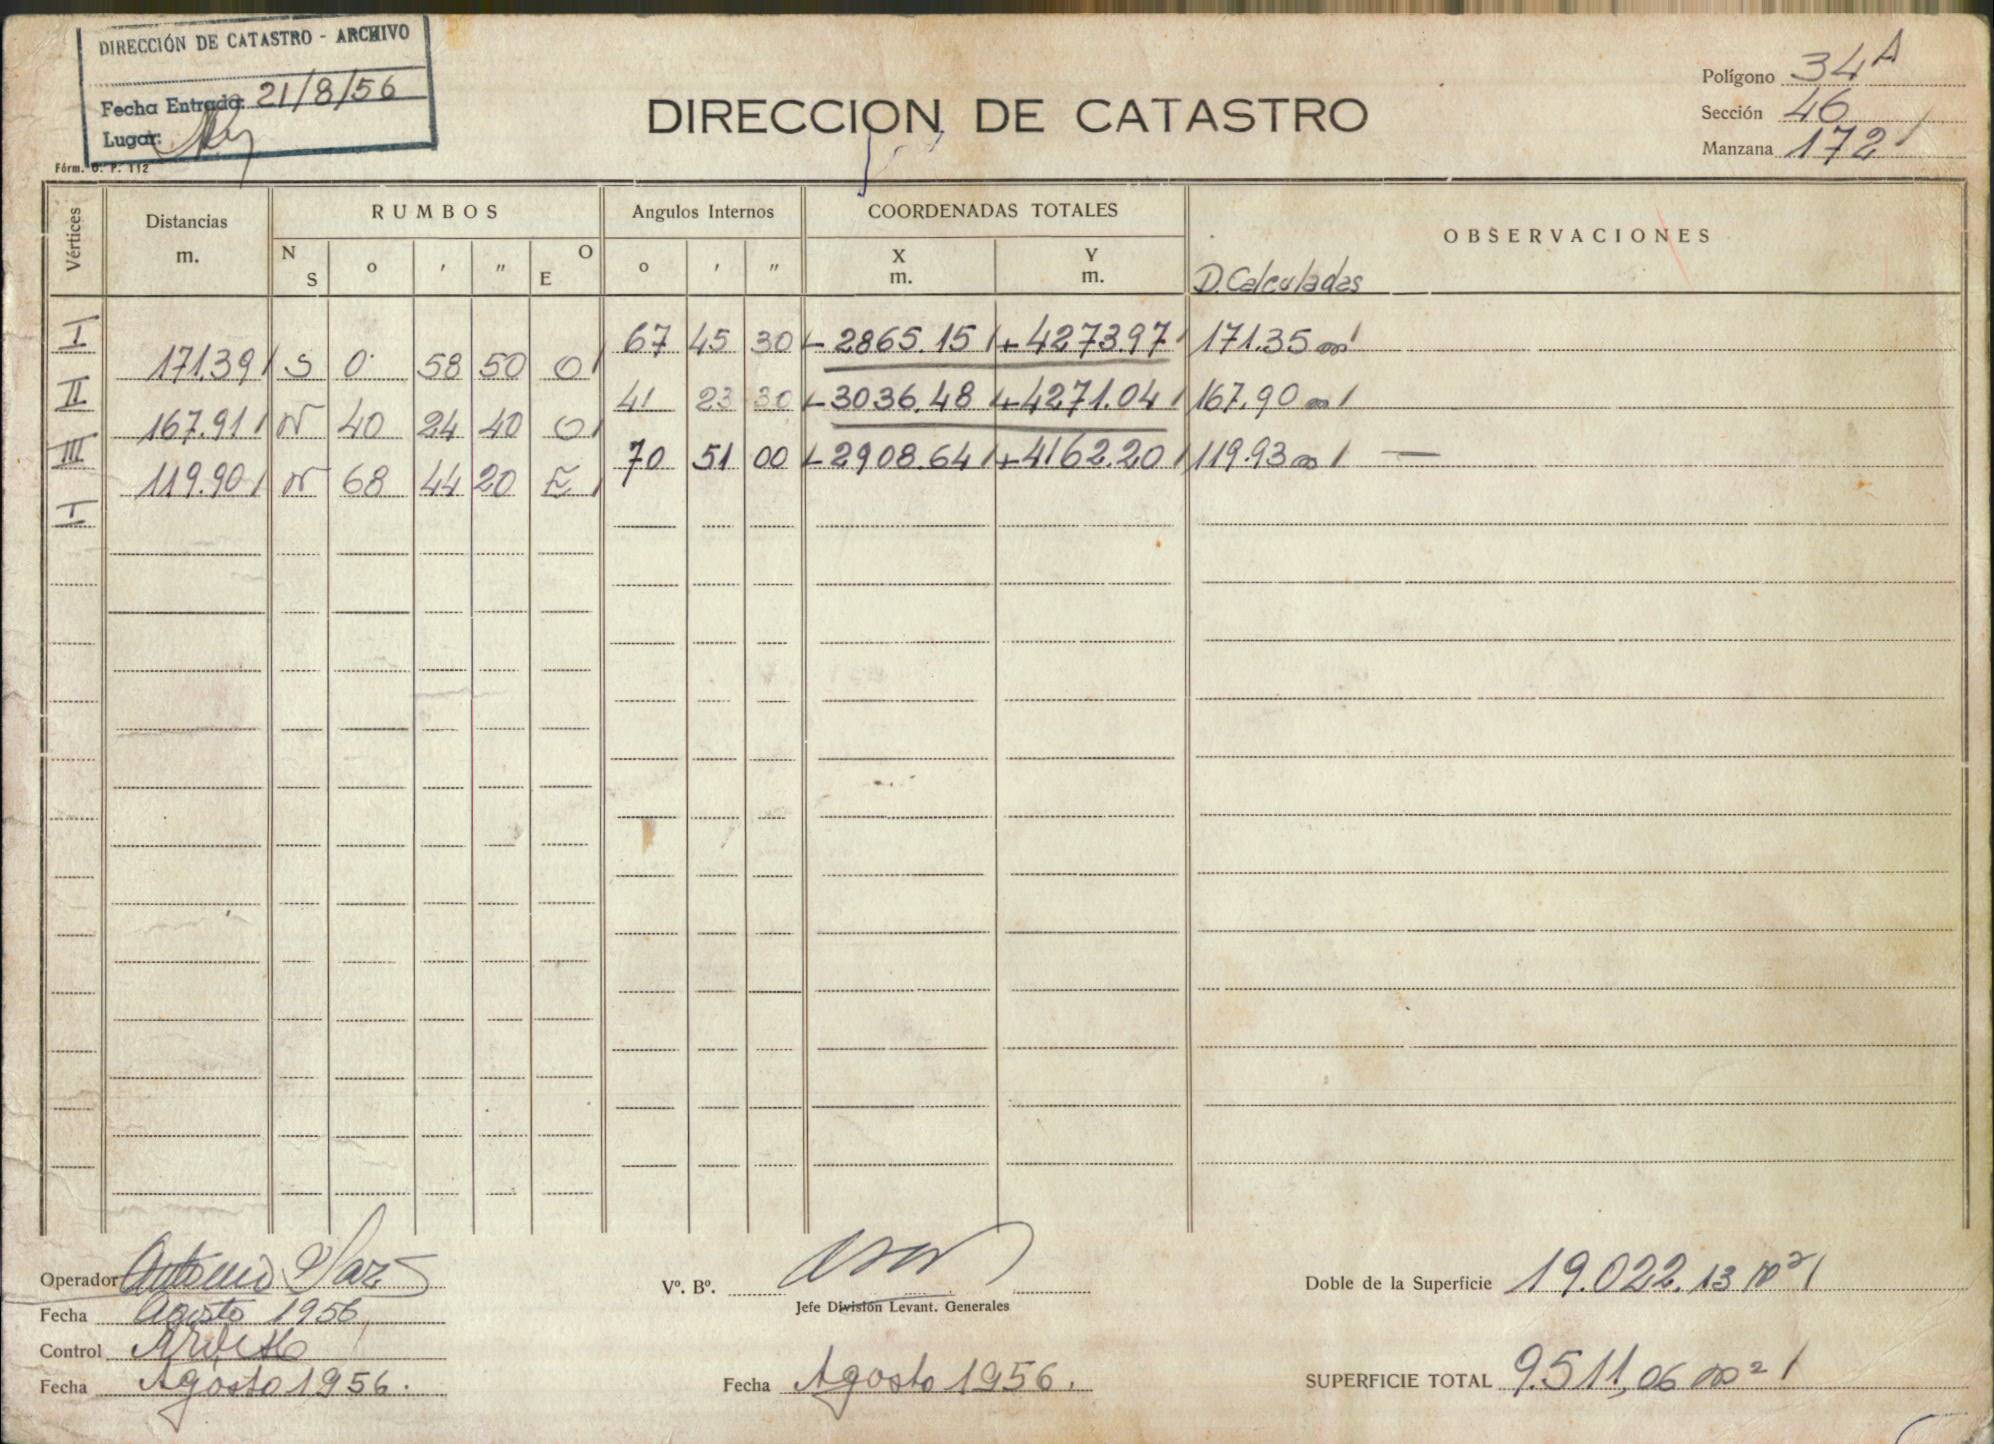 DIRECCIÓN DE CATASTRO - ARCHIVO
Fecha Entrada: 21/8/56
Lugar:
Fórm. G. P. 112
DIRECCION DE CATASTRO
Polígono 34 A
Sección 46
Manzana 172
Vértices
Distancias m.
RUMBOS
N S o ' " E O
Angulos Internos
o ' "
COORDENADAS TOTALES
X m.
Y m.
OBSERVACIONES
D. Calculadas
I 67 45 30 - 2865.15 + 4273.97 171.35 m
171.39 S 0 58 50 O
II 41 23 30 - 3036.48 + 4271.04 167.90 m
167.91 N 40 24 40 O
III 70 51 00 - 2908.64 + 4162.20 119.93 m —
119.90 N 68 44 20 E
I
Operador Antonio Diaz
Fecha Agosto 1956
Control
Fecha Agosto 1956.
Vº. Bº.
Jefe División Levant. Generales
Fecha Agosto 1956.
Doble de la Superficie 19.022.13 m²
SUPERFICIE TOTAL 9.511,06 m²